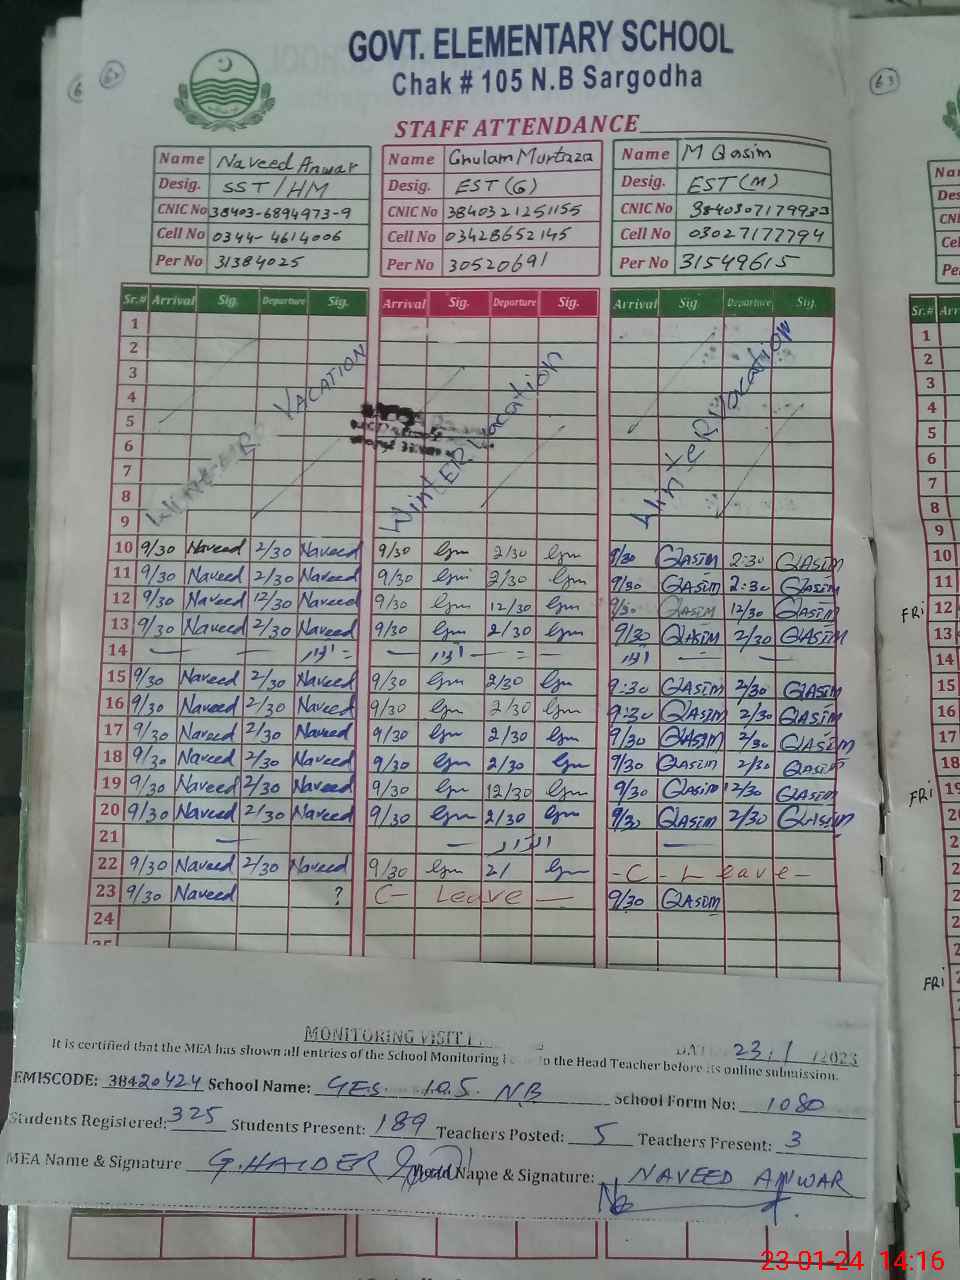 GOVT. ELEMENTARY SCHOOL
Chak # 105 N.B Sargodha
STAFF ATTENDANCE
63
Name Naveed Anwar Name Ghulam Murtaza Name M Qasim
Desig. SST/HM Desig. EST (G) Desig. EST (M)
CNIC No 38403-6894973-9 CNIC No 3840321251155 CNIC No
Cell No 0344-4614006 Cell No 03428652145 Cell No 03027177794
Per No 31384025 Per No 30520691 Per No 31549615
Sr.# Arrival Sig. Departure Sig. Arrival Sig. Departure Sig. Arrival Sig. Departure Sig.
1
2
3
4
5
6
7
8
9
WINTER VACATION WINTER Vacation WinteR Vacation
10 9/30 Naveed 2/30 Naveed 9/30 2/30 9/30 QASIM 2:30 QASIM
11 9/30 Naveed 2/30 Naveed 9/30 2/30 9/30 QASIM 2:30 QASIM
12 9/30 Naveed 12/30 Naveed 9/30 12/30 9/30 QASIM 12/30 QASIM
13 9/30 Naveed 2/30 Naveed 9/30 2/30 9/30 QASIM 2/30 QASIM
14 — — اتوار = — اتوار — = — اتوار — —
15 9/30 Naveed 2/30 Naveed 9/30 2/30 9:30 QASIM 2/30 QASIM
16 9/30 Naveed 2/30 Naveed 9/30 2/30 9:30 QASIM 2/30 QASIM
17 9/30 Naveed 2/30 Naveed 9/30 2/30 9/30 QASIM 2/30 QASIM
18 9/30 Naveed 2/30 Naveed 9/30 2/30 9/30 QASIM 2/30 QASIM
19 9/30 Naveed 2/30 Naveed 9/30 12/30 9/30 QASIM 12/30 QASIM
20 9/30 Naveed 2/30 Naveed 9/30 2/30 9/30 QASIM 2/30 QASIM
21 — — اتوار —
22 9/30 Naveed 2/30 Naveed 9/30 2/ - C - Leave -
23 9/30 Naveed ? C- Leave — 9/30 QASIM
24
MONITORING VISIT
23.1 /2023
It is certified that the MEA has shown all entries of the School Monitoring to the Head Teacher before its online submission.
EMISCODE: 38420424 School Name: GES 105 NB School Form No: 1080
Students Registered: 325 Students Present: 189 Teachers Posted: 5 Teachers Present: 3
MEA Name & Signature G.HAIDER Name & Signature: NAVEED ANWAR
63
Sr.#
1
2
3
4
5
6
7
8
9
10
11
FRi 12
13
14
15
16
17
18
FRi 19
FRi
23-01-24 14:16